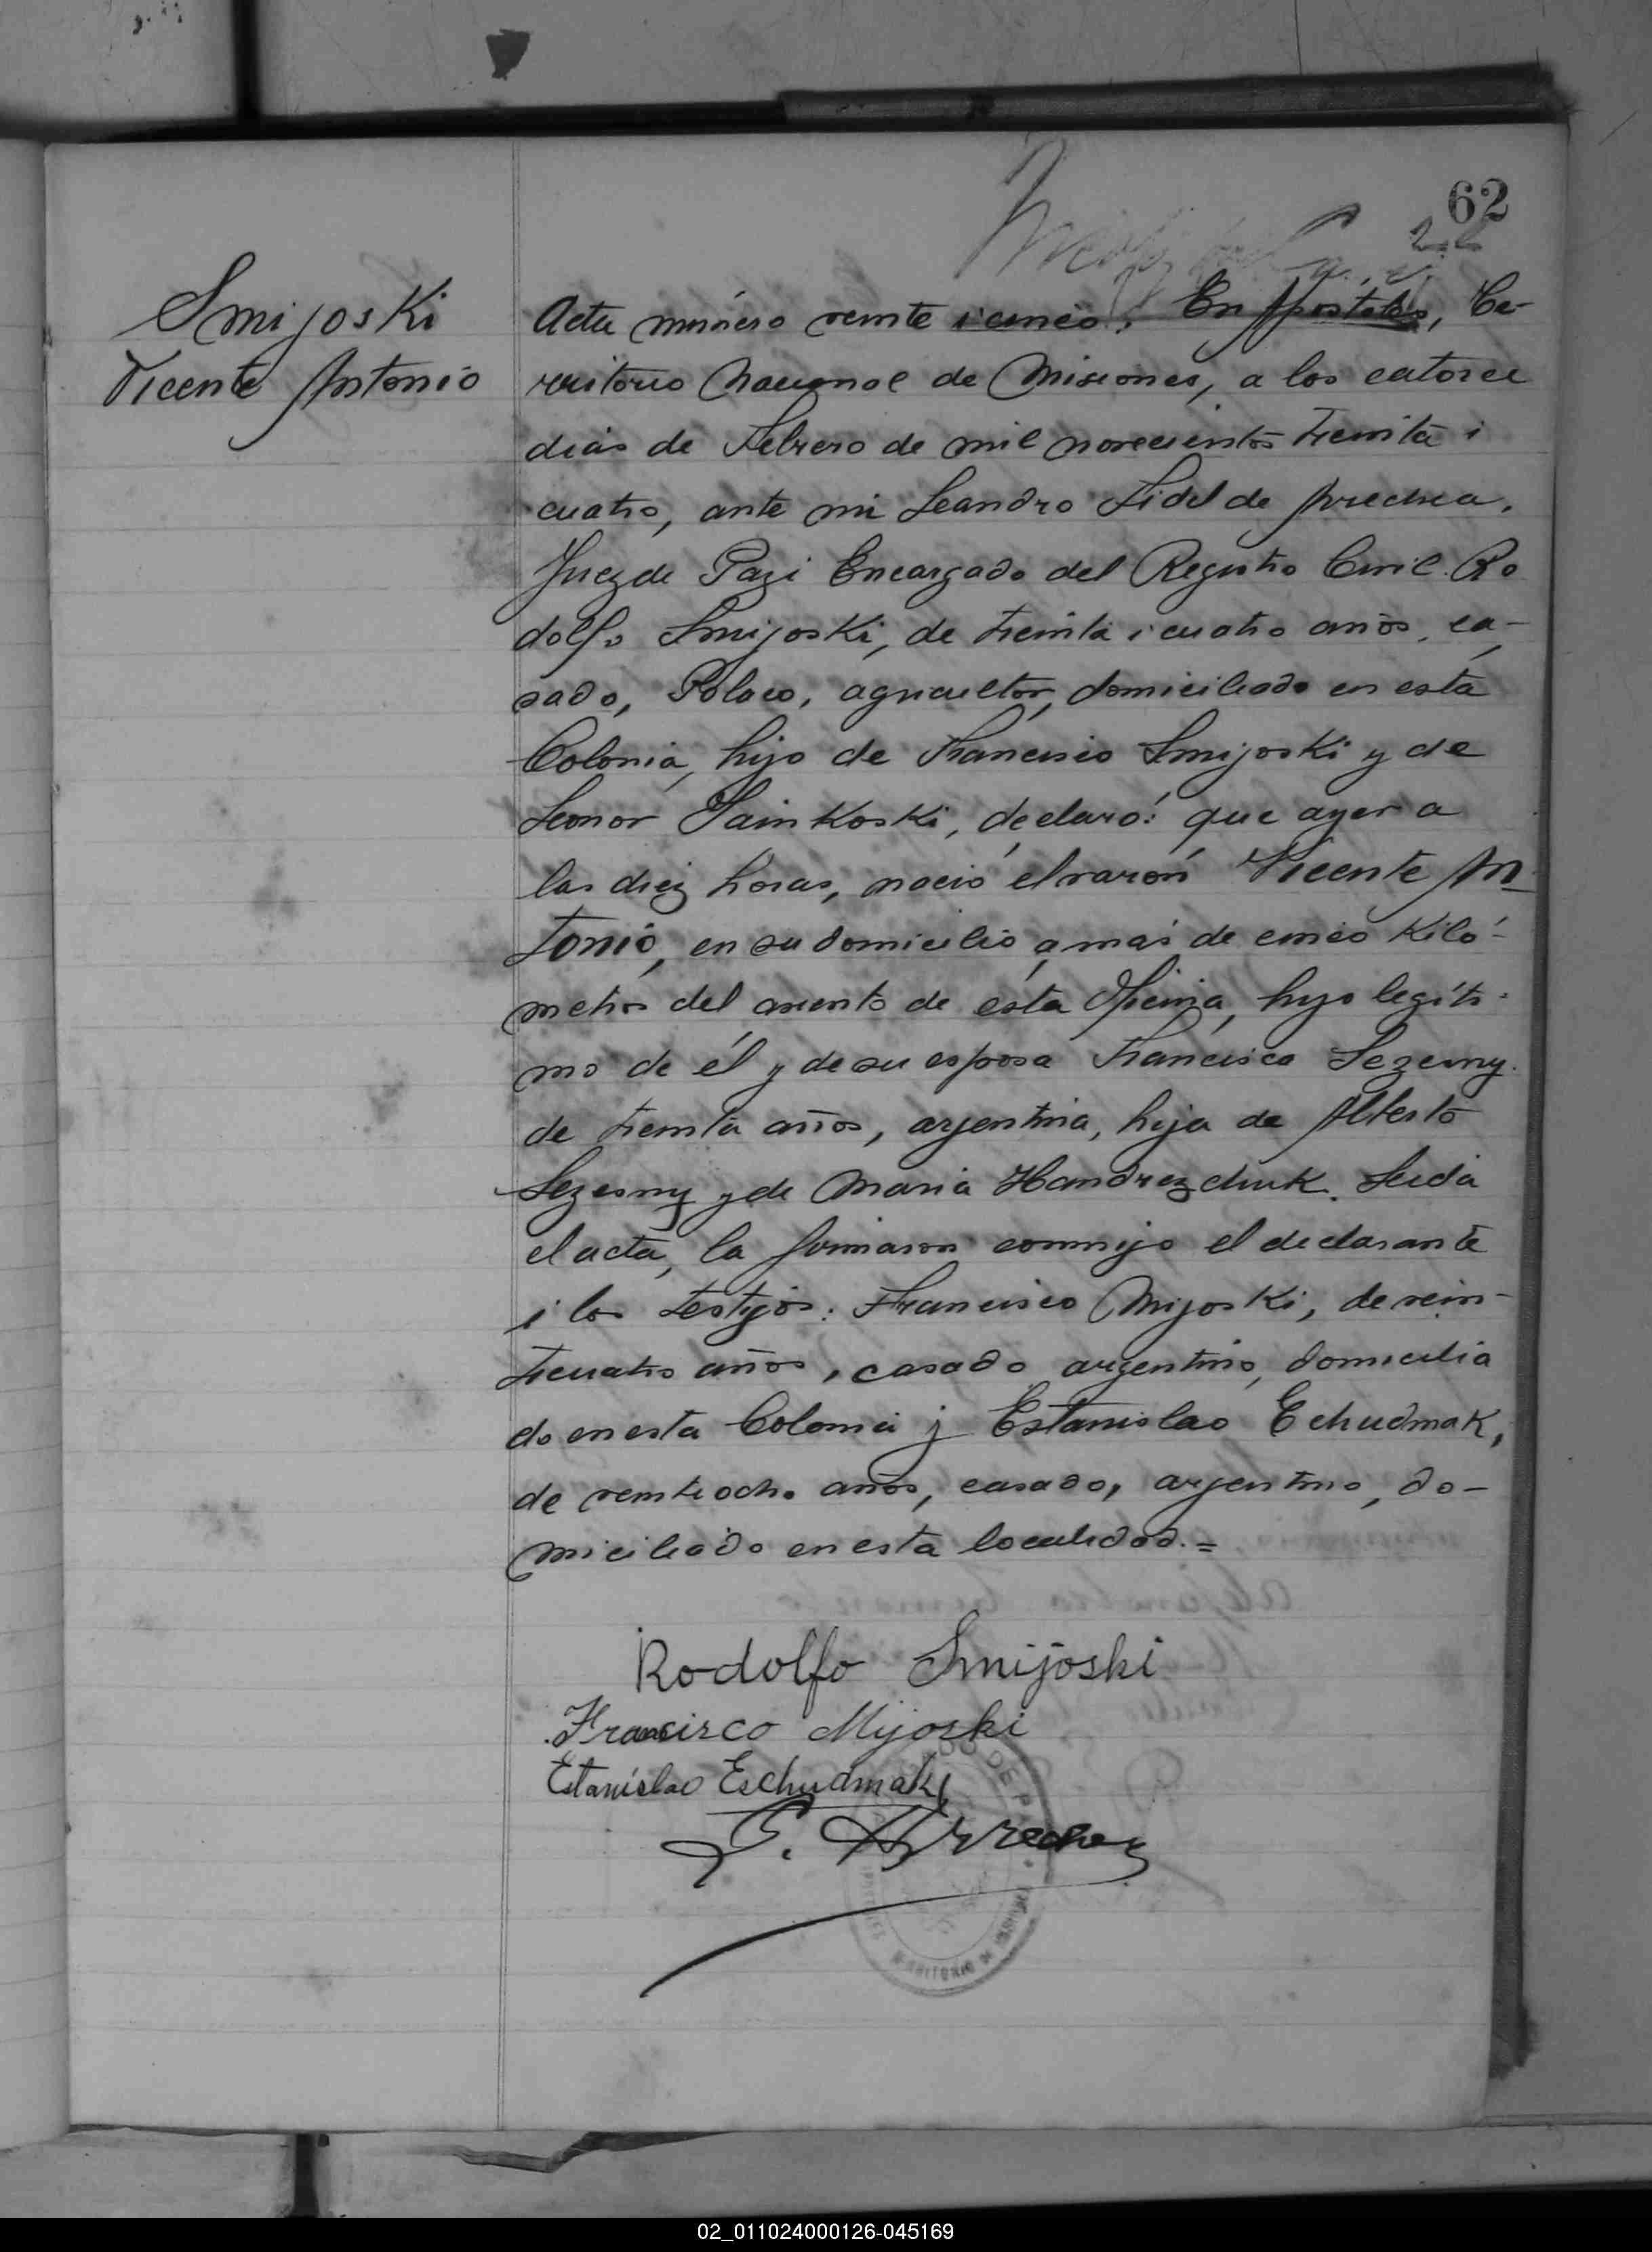 62
22
Smijoski
Vicente Antonio
Acta número veinte i cinco: En Apostoles, Te-
rritorio Nacional de Misiones, a los catorce
dias de Febrero de mil novecientos treinta i
cuatro, ante mi Leandro Fidel de Arrechea,
Juez de Paz i Encargado del Registro Civil. Ro
dolfo Smijoski, de treinta i cuatro años, ca-
sado, Polaco, agricultor, domiciliado en esta
Colonia, hijo de Francisco Smijoski y de
Leonor Sainkoski, declaró: que ayer a
las diez horas, nació el varón Vicente An-
tonio, en su domicilio, a más de cinco kiló-
metros del asiento de esta Oficina, hijo legíti-
mo de él y de su esposa Francisca Sezesny.
de treinta años, argentina, hija de Alberto
Sezesny y de Maria Handrezchuk. Leida
el acta, la firmaron conmigo el declarante
i los testigos: Francisco Mijoski, de vein-
ticuatro años, casado, argentino, domicilia
do en esta Colonia y Estanislao Echudmak,
de veintiocho años, casado, argentino, do-
miciliado en esta localidad.=
Rodolfo Smijoski
Francisco Mijoski
Estanislao Eschudmak
Arrechea
DO DE PA
TERRITORIO DE MISIONES
02_011024000126-045169